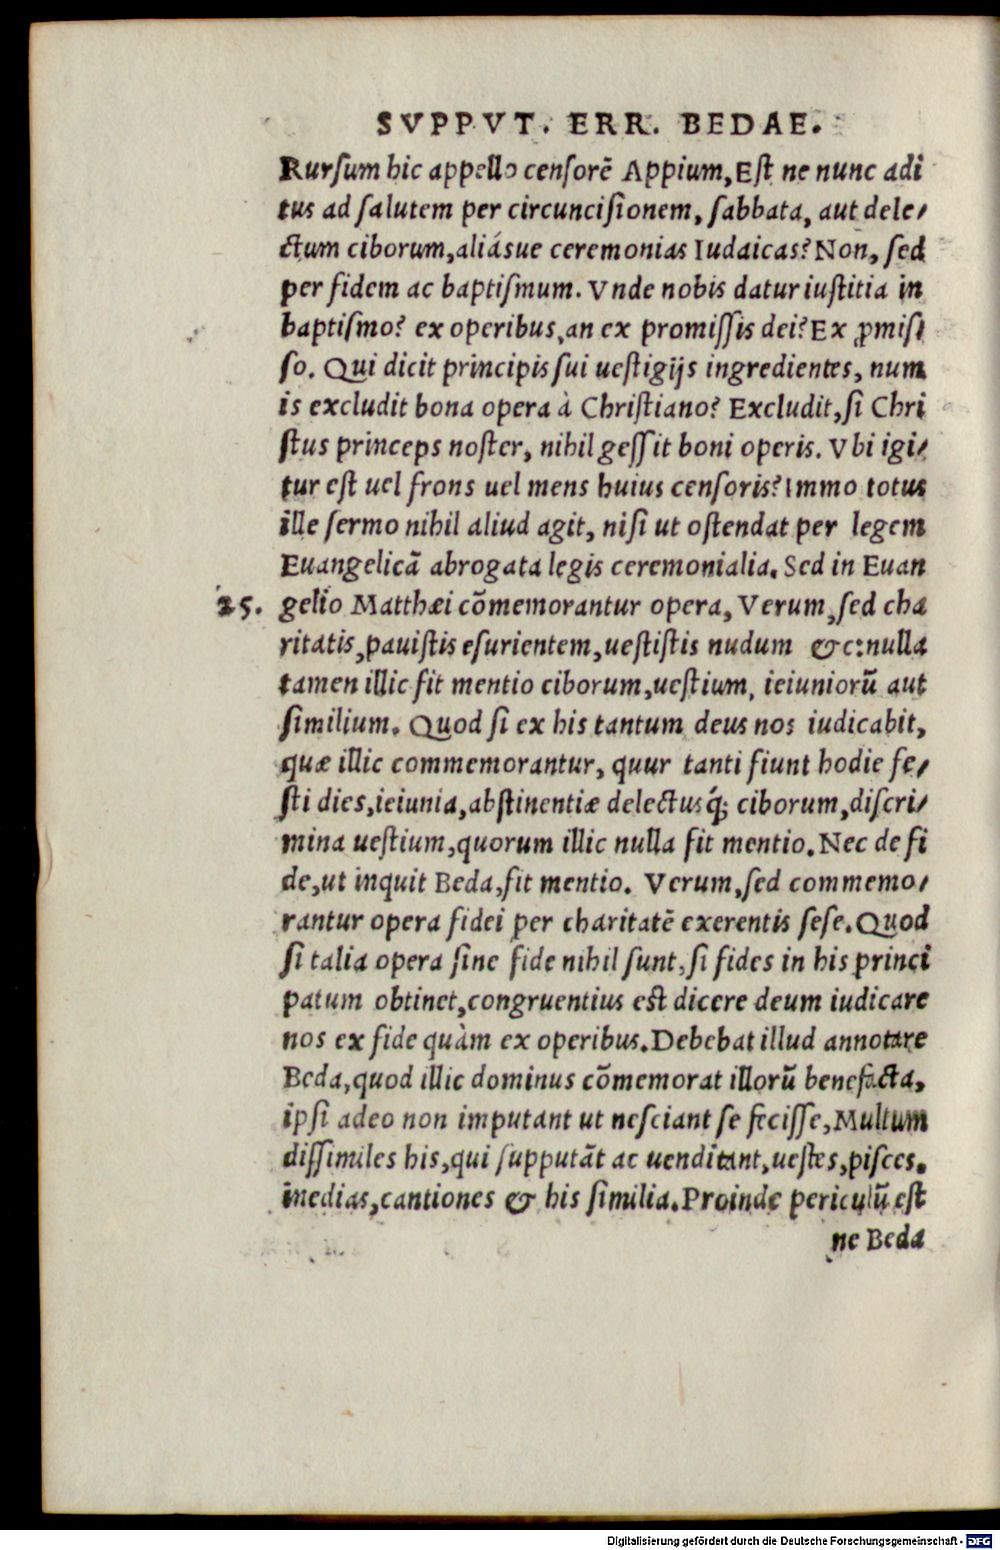 SVPPVT. ERR. BEDAE.
Rursum hic appello censorẽ Appium, Est ne nunc adi
tus ad salutem per circuncisionem, sabbata, aut dele/
ctum ciborum, aliásue ceremonias Iudaicas? Non, sed
per fidem ac baptismum. Vnde nobis datur iustitia in
baptismo? ex operibus, an ex promissis dei? Ex ꝓmis/
so. Qui dicit principis sui uestigijs ingredientes, num
is excludit bona opera à Christiano? Excludit, si Chri
stus princeps noster, nihil gessit boni operis. Vbi igi/
tur est uel frons uel mens huius censoris? Immo totus
ille sermo nihil aliud agit, nisi ut ostendat per legem
Euangelicã abrogata legis ceremonialia. Sed in Euan
25. gelio Matthæi cõmemorantur opera, Verum, sed cha
ritatis, pauistis esurientem, uestistis nudum &c: nulla
tamen illic fit mentio ciborum, uestium, ieiuniorũ aut
similium. Quod si ex his tantum deus nos iudicabit,
quæ illic commemorantur, quur tanti fiunt hodie fe/
sti dies, ieiunia, abstinentiæ delectusq́; ciborum, discri/
mina uestium, quorum illic nulla fit mentio. Nec de fi
de, ut inquit Beda, fit mentio. Verum, sed commemo/
rantur opera fidei per charitatẽ exerentis sese. Quod
si talia opera sine fide nihil sunt, si fides in his princi
patum obtinet, congruentius est dicere deum iudicare
nos ex fide quàm ex operibus. Debebat illud annotare
Beda, quod illic dominus cõmemorat illorũ benefacta,
ipsi adeo non imputant ut nesciant se fecisse, Multum
dissimiles his, qui supputãt ac uenditant, uestes, pisces.
inedias, cantiones & his similia. Proinde periculũ est
ne Beda
Digitalisierung gefördert durch die Deutsche Forschungsgemeinschaft - DFG